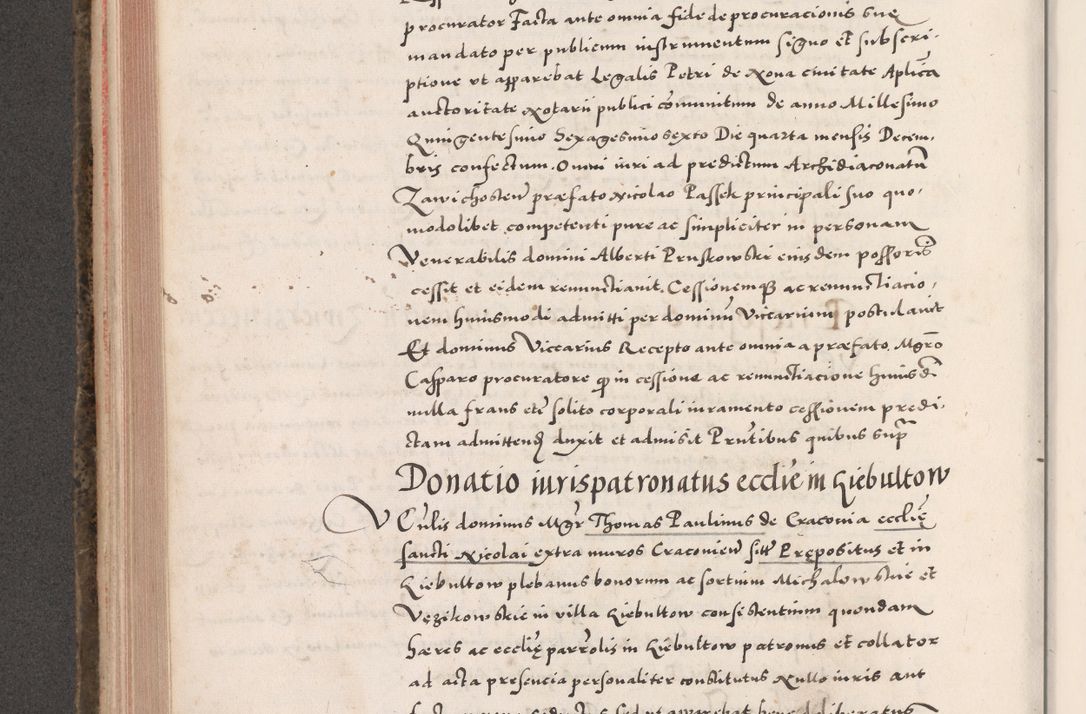 procurator Facta ante omnia fide de procuracionis sue
mandato per publicum instrumentum signo et subscri-
ptione ut apparebat Legalis Petri de Nova civitate Aplica
auctoritate Notarii publici communitum de anno Millesimo
Quingentesimo Sexagesimo sexto Die quarta mensis Decem-
bris confectum. Omni iuri ad predictum Archidiaconatum
Zawichosten præfato Nicolao Passek principali suo quo-
modolibet competenti pure ac simpliciter in personam
Venerabilis domini Alberti Pruskowski eiusdem possoris
cessit et eidem renunctiavit. Cessionemq ac renunctiacio-
nem huiusmodi admitti per dominum Viccarium postulavit
Et dominus Viccarius Recepto ante omnia a præfato Mgro
Casparo procuratore q in cessione ac renunctiacione huius
nulla fraus solito corporali iuramento cessionem predi-
ctam admittend duxit et admisit Prntibus quibus supr
Donatio iurispatronatus ecclie in Giebultow
Venlis dominus Mgr Thomas Paulinus de Cracovia ecclie
sancti Nicolai extra muros Cracovien sitt Prepositus et in
Giebultow plebanus bonorum ac sortium Michalowskie et
Vezikowskie in villa Giebultow consistentium quondam
hæres ac ecclie parrolis in Giebultow patronus et collator
ad acta presencia personaliter constitutus Nullo iuris aut